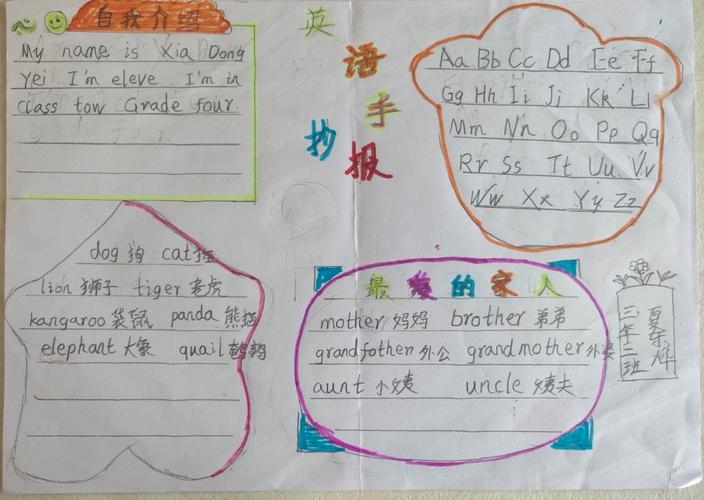 自我介绍
My name is Xia Dong
Yei I'm eleve I'm in
class tow Grade four.
英语手抄报
Aa Bb Cc Dd Ee Ff
Gg Hh Ii Jj Kk Ll
Mm Nn Oo Pp Qq
Rr Ss Tt Uu Vv
Ww Xx Yy Zz
dog 狗 cat 猫
lion 狮子 tiger 老虎
kangaroo 袋鼠 panda 熊猫
elephant 大象 quail 鹌鹑
最爱的家人
mother 妈妈 brother 弟弟
grandfother 外公 grandmother 外婆
aunt 小姨 uncle 姨夫
三年二班
夏东烨